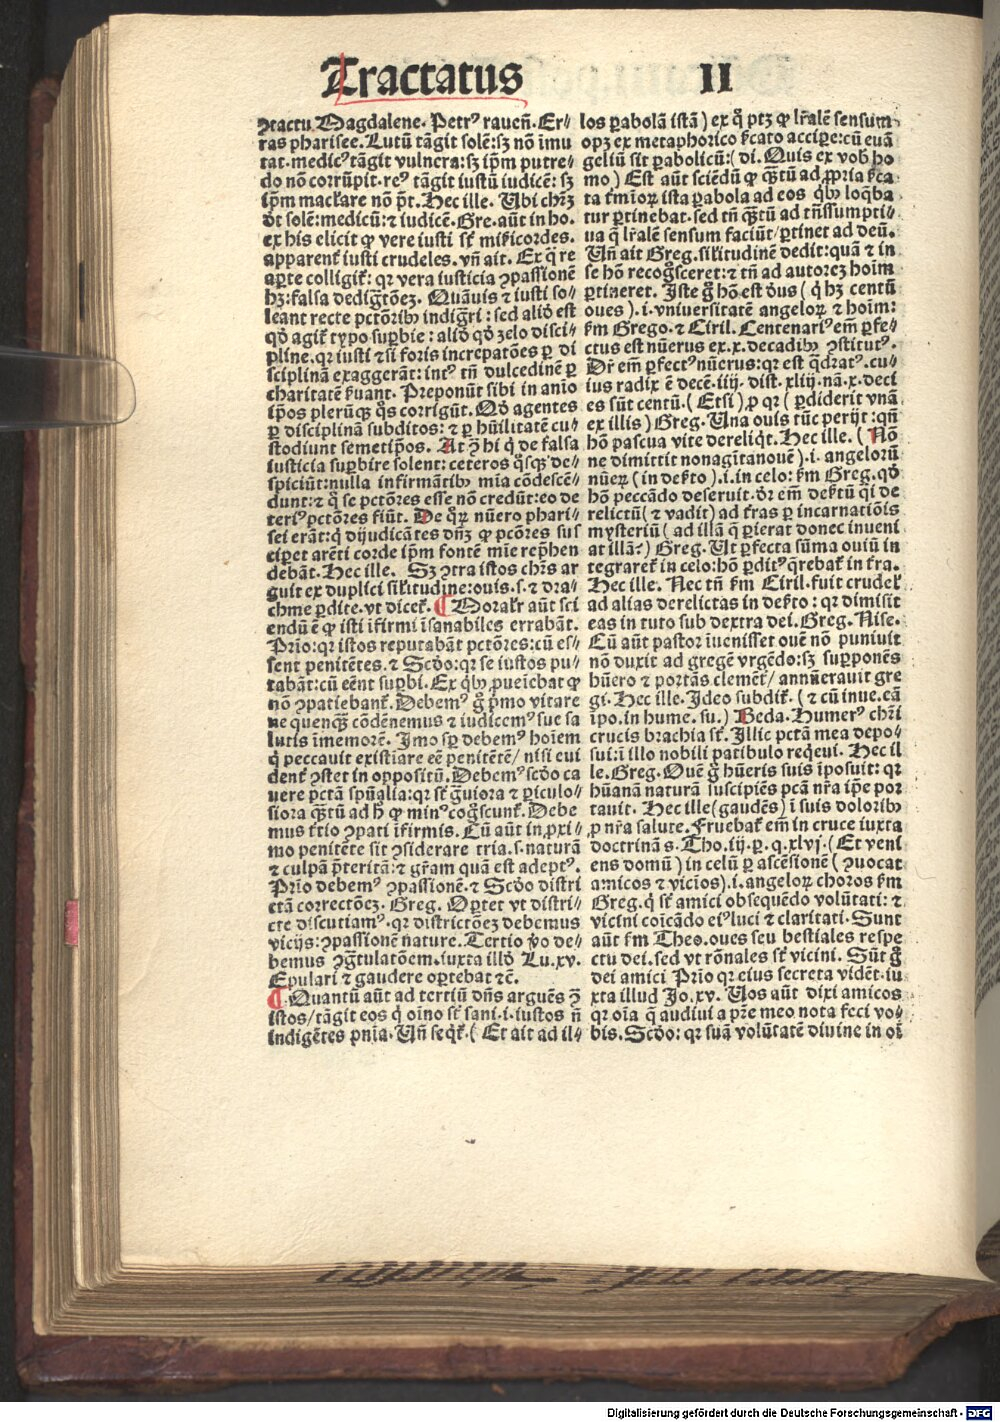 Tractatus II
ꝯtactu Magdalene. Petrꝰ raueñ. Er⸗
ras pharisee. Lutū tāgit solē: sꝫ nō īmu
tat. medicꝰ tāgit vulnera: sꝫ ip̄m putre⸗
do nō corrūpit. reꝰ tāgit iustū iudicē: sꝫ
ip̄m maculare nō p̄t. Hec ille. Ubi chr̄m
dt solē: medicū: ⁊ iudicē. Gre. aūt in ho.
ex his elicit ꝙ vere iusti st̄ mīsericordes.
apparent̄ iusti crudeles. vn̄ ait. Ex q̄ re
aꝑte colligit̄: qꝛ vera iusticia ꝯpassionē
hꝫ: falsa dedignatōeꝫ. Quāuis ⁊ iusti so⸗
leant recte pctōribꝰ indigr̄i: sed aliđ est
qđ agit̄ typo suꝑbie: aliđ qđ zelo disci⸗
pline. qꝛ iusti ⁊ si foris increpatōes ꝑ di
sciplinā exaggerāt: intꝰ tn̄ dulcedinē ꝑ
charitatē ẜuant. Preponūt sibi in anīo
ip̄os plerūqꝫ q̄s corrigūt. Qđ agentes
ꝑ disciplinā subditos: ⁊ ꝑ hūilitatē cu⸗
stodiunt semetip̄os. At ꝯ̄ hi q̇ de falsa
iusticia suꝑbire solent: ceteros q̄sqꝫ de⸗
spiciūt: nulla infirmātibꝰ mīa cōdescē⸗
dunt: ⁊ q̄ se pctōres esse nō credūt: eo de
teriꝰ pctōres fiūt. De qꝝ nūero phari⸗
sei erāt: q̇ dijudicātes dn̄ꝫ ꝙ pcōres sus
ciꝑet arēti corde ip̄m fontē mīe rep̄hen
debāt. Hec ille. Sꝫ ꝯtra istos chr̄s ar
guit ex duplici sil̄itudine: ouis. s. ⁊ dra⸗
chme ꝑdite. vt dicet̄. ¶ Moralr̄ aūt sci
endū ē ꝙ isti īfirmi īsanabiles errabāt.
Prīo: qꝛ istos reputabāt pctōres: cū es⸗
sent penitētes. ⁊ Scđo: qꝛ se iustos pu⸗
tabāt: cū eēnt suꝑbi. Ex qꝰ ꝓueīebat ꝙ
nō ꝯpatiebant̄. Debemꝰ g̊ p̄mo vitare
ne quenqꝫ cōdēnemus ⁊ iudicemꝰ sue sa
lutis īmemorē. Imo sꝑ debemꝰ hoīem
q̇ peccauit existīare eē penitētē/ nisi eui
dent̄ ꝯstet in oppositū. Debemꝰ scđo ca
uere pctā spūalia: qꝛ st̄ g̊uiora ⁊ ꝑiculo⸗
siora q̄ꝫtū ad h̄ ꝙ minꝰ cog̊scunt̄. Debe
mus t̄tio ꝯpati īfirmis. Cū aūt in ꝓxi⸗
mo penitēte sit ꝯsiderare tria. s. naturā
⁊ culpā p̄teritā: ⁊ gr̄am quā est adeptꝰ.
Prīo debemꝰ ꝯpassionē. ⁊ Scđo distri
ctā correctōeꝫ. Greg. Oꝑtet vt distri⸗
cte discutiamꝰ. qꝛ districtōeꝫ debemus
vicijs: ꝯpassionē nature. Tertio ꝟo de⸗
bemus ꝯg̊tulatōem. iuxta illđ Lu. xv.
Epulari ⁊ gaudere oꝑtebat ⁊c̄.
¶ Quantū aūt ad tertiū dn̄s arguēs ꝯ̄
istos/ tāgit eos q̇ oīno st̄ sani. i. iustos n̄
indigētes pn̄ia. Un̄ seqt̄. ( Et ait ad il⸗
los ꝑabolā istā ) ex q̇ ptꝫ ꝙ lr̄alē sensum
opꝫ ex metaphorico ẜcato acciꝑe: cū euā
geliū sit ꝑabolicū: ( di. Quis ex vob̄ ho
mo ) Est aūt sciēdū ꝙ q̄ꝫtū ad ꝓpria ẜca
ta t̄mīoꝝ ista ꝑabola ad eos qͥbꝰ loq̄ba
tur ꝑtinebat. sed tn̄ q̄ꝫtū ad tn̄ssumpti⸗
ua q̄ lr̄alē sensum faciūt/ ꝑtinet ad deū.
Un̄ ait Greg. sil̄itudinē dedit: quā ⁊ in
se hō recog̊sceret: ⁊ tn̄ ad autoreꝫ hoīm
ꝑtineret. Iste g̊ hō est đus ( q̇ hꝫ centū
oues ) . i. vniuersitatē angeloꝝ ⁊ hoīm:
ẜm Grego. ⁊ Ciril. Centenariꝰ em̄ ꝑfe⸗
ctus est nūerus ex. x. decadibꝰ ꝯstitutꝰ.
Dr̄ em̄ ꝑfectꝰ nūerus: qꝛ est q̄dratꝰ. cu⸗
ius radix ē decē. iiij. dist. xliij. nā. x. deci
es sūt centū. ( Etsi ) ꝓ qꝛ ( ꝑdiderit vnā
ex illis ) Greg. Una ouis tūc perijt: qn̄
hō pascua vite dereliq̇t. Hec ille. ( Nō
ne dimittit nonagītanouē ) . i. angelorū
nūeꝝ ( in deẜto ) . i. in celo: ẜm Greg. qđ
hō peccādo deseruit. dr̄ em̄ deẜtū q̄i de
relictū ( ⁊ vadit ) ad t̄ras ꝑ incarnatiōis
mysteriū ( ad illā q̄ ꝑierat donec inueni
at illā? ) Greg. Ut ꝑfecta sūma ouiū in
tegraret̄ in celo: hō ꝑditꝰ q̄rebat̄ in t̄ra.
Hec ille. Nec tn̄ ẜm Ciril. fuit crudel̄
ad alias derelictas in deẜto: qꝛ dimisit
eas in tuto sub dextra dei. Greg. Nise.
Cū aūt pastor īuenisset ouē nō puniuit
nō duxit ad gregē vrgēdo: sꝫ suꝑponēs
hūero ⁊ portās clemēt̄/ annūerauit gre
gi. Hec ille. Ideo subdit̄. ( ⁊ cū inue. eā
īpo. in hume. su. ) Beda. Humerꝰ chr̄i
crucis brachia st̄. Illic pctā mea depo⸗
sui: ī illo nobili patibulo req̇eui. Hec il
le. Greg. Ouē g̊ hūeris suis īposuit: qꝛ
hūanā naturā suscipiēs pcā nr̄a ip̄e por
tauit. Hec ille ( gaudēs ) ī suis doloribꝰ
ꝓ nr̄a salute. Fruebat̄ em̄ in cruce iuxta
doctrinā s. Tho. iij. ꝑ. q. xlvj. ( Et veni
ens domū ) in celū ꝑ ascēsionē ( ꝯuocat
amicos ⁊ vicīos ) . i. angeloꝝ choros ẜm
Greg. q̇ st̄ amici obsequēdo volūtati: ⁊
vicini coīcādo eiꝰ luci ⁊ claritati. Sunt
aūt ẜm Theo. oues seu bestiales respe
ctu dei. sed vt rōnales st̄ vicini. Sūt g̊
dei amici Prīo qꝛ eius secreta vidēt. iu
xta illud Jo. xv. Uos aūt dixi amicos
qꝛ oīa q̄ audiui a pr̄e meo nota feci vo⸗
bis. Scđo: qꝛ suā volūtatē diuine in oī
Digitalisierung gefördert durch die Deutsche Forschungsgemeinschaft - DFG